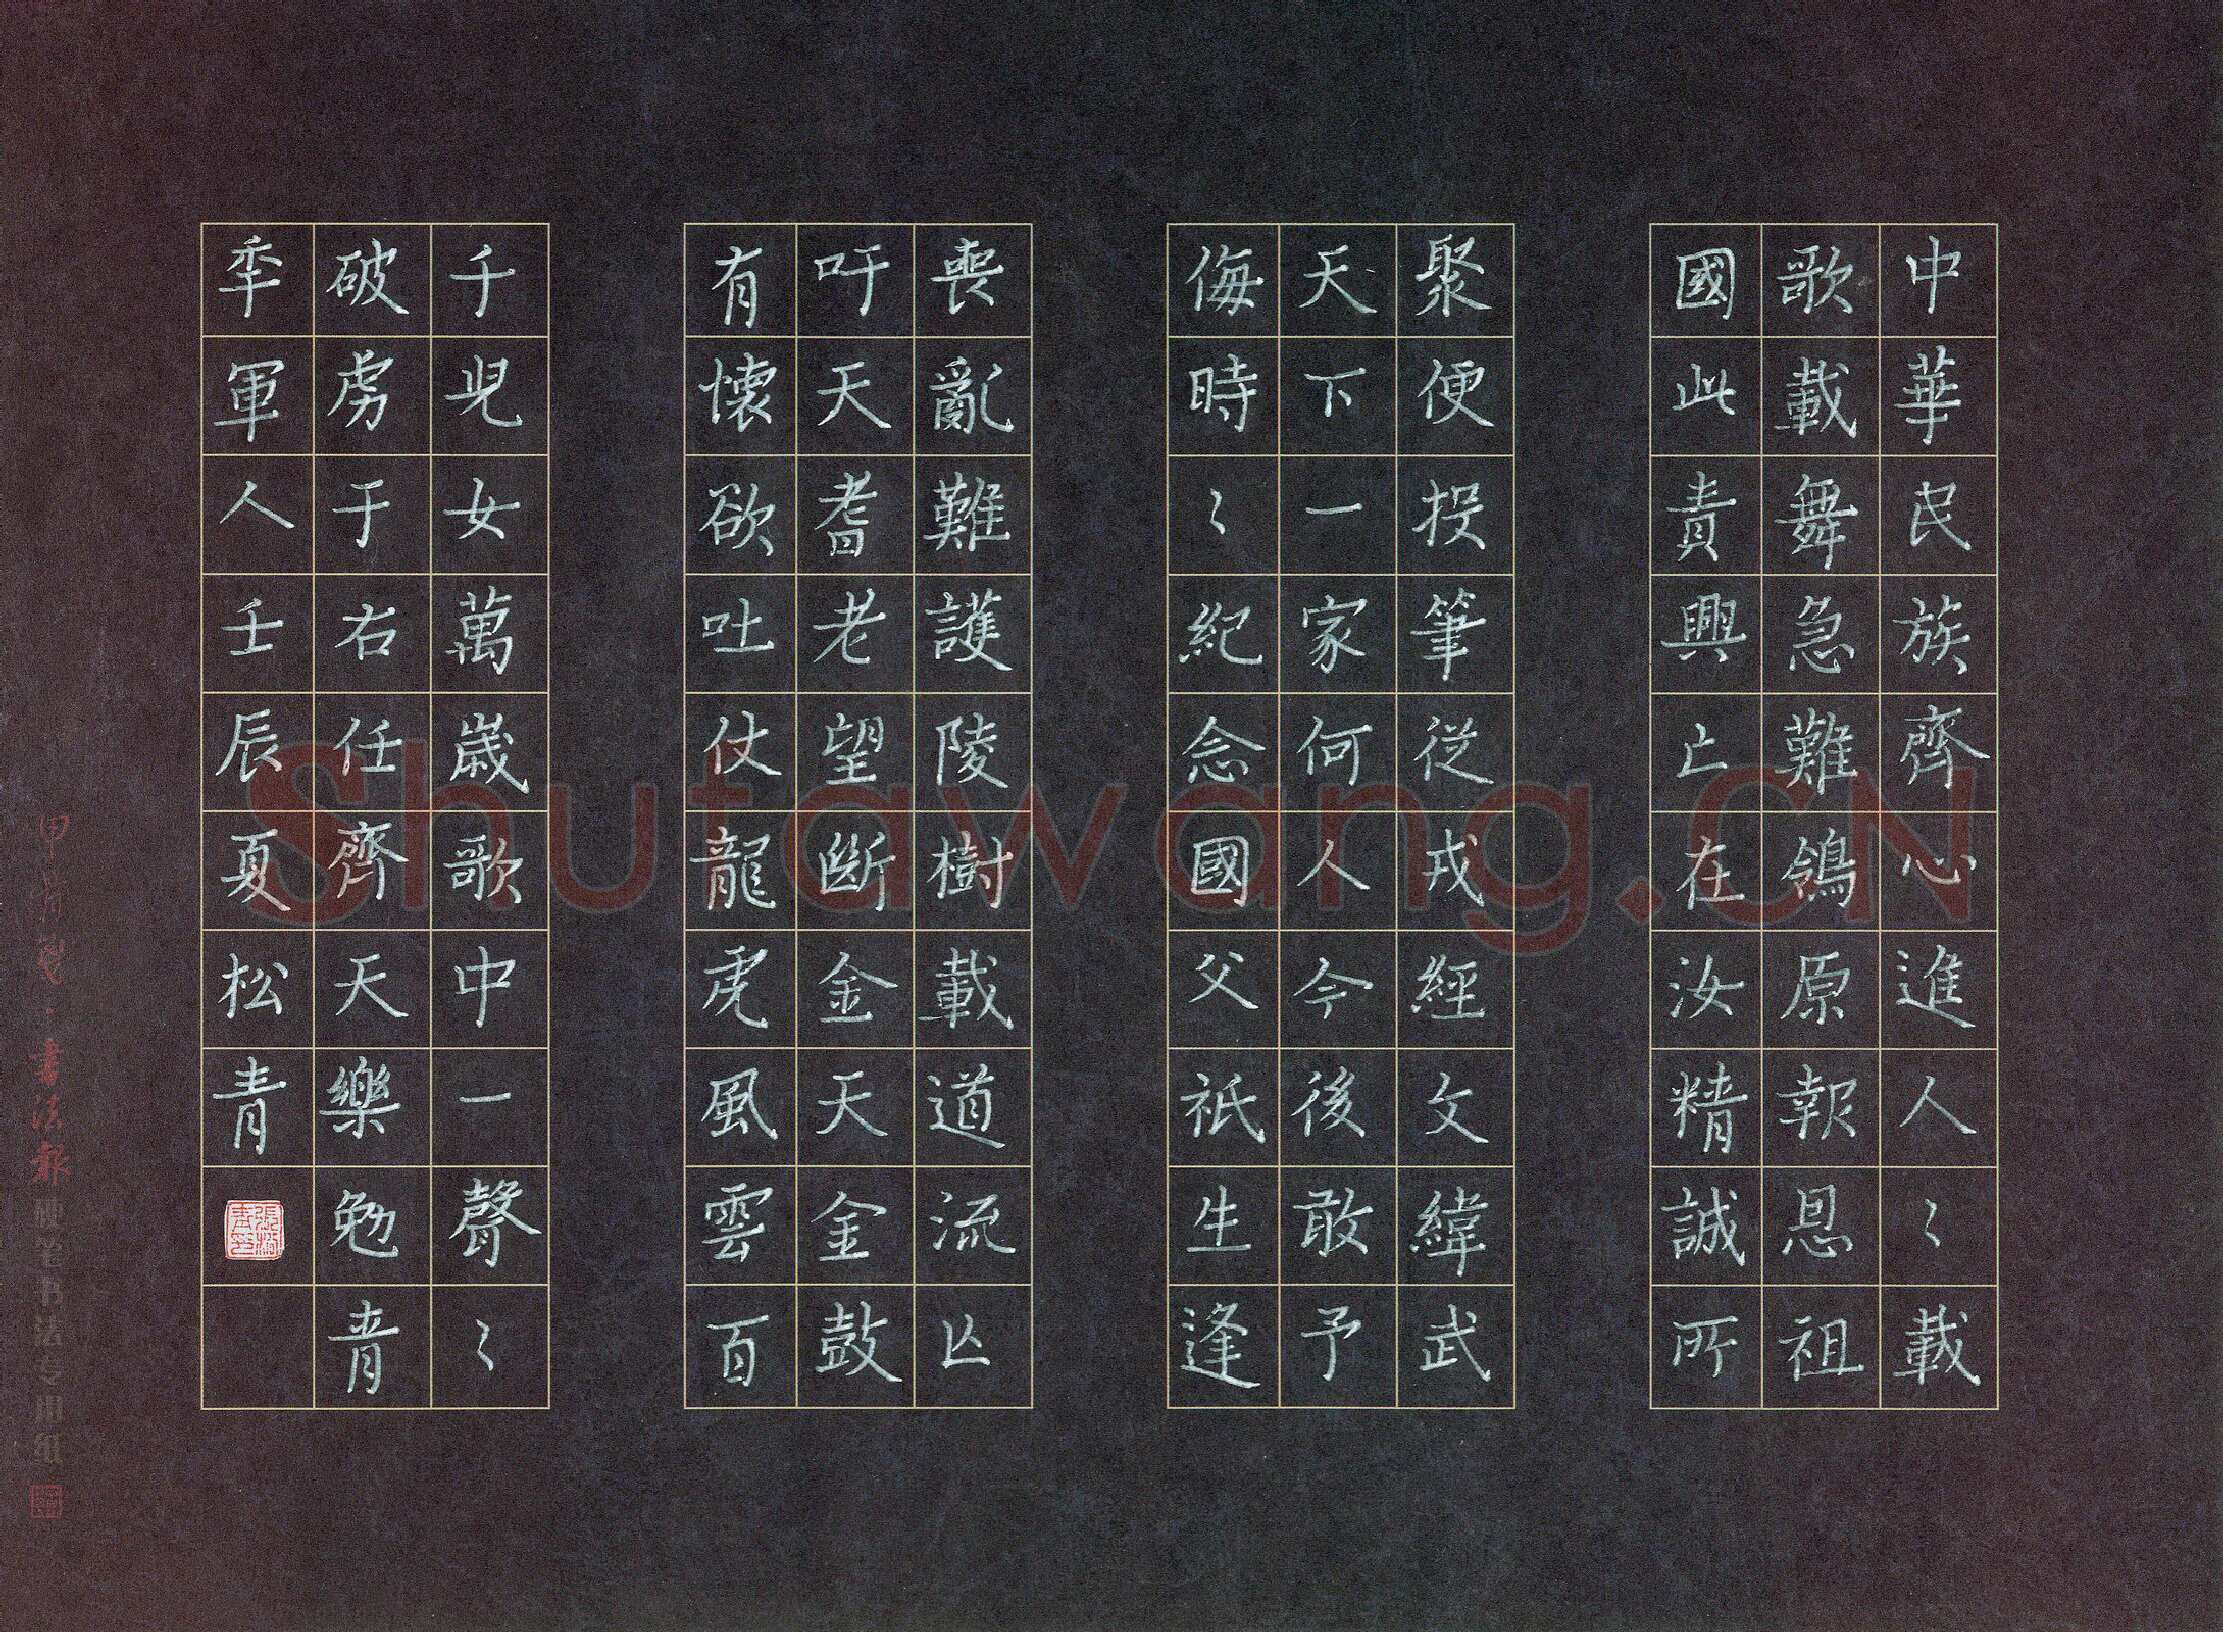 中華民族齊心進人〻載
歌載舞急難鴒原報恩祖
國此責興亡在汝精誠所
聚便投筆從戎經文緯武
天下一家何人今後敢予
侮時〻紀念國父祇生逢
喪亂難護陵樹載道流亡
吁天耆老望斷金天金鼓
有懷欲吐仗龍虎風雲百
千兒女萬歲歌中一聲〻
破虜于右任齊天樂勉青
秊軍人壬辰夏松青
張松青印
書法報硬笔书法专用纸
Shufawang.CN